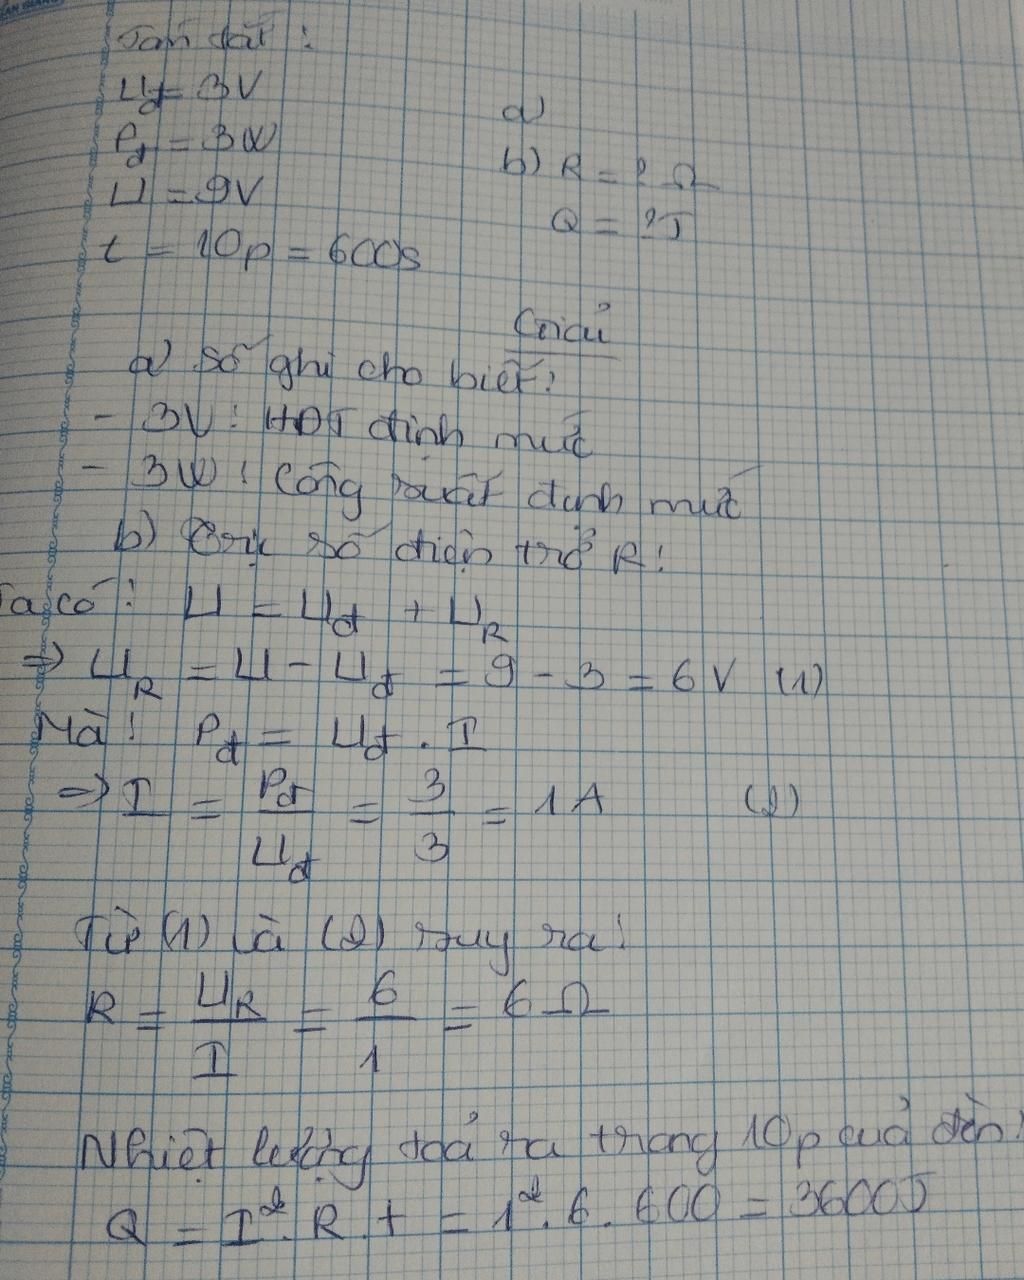 Tóm tắt:
Uđ = 3V
Pđ = 3W
U = 9V
t = 10p = 600s
a)
b) R = ? Ω
Q = ?J
Giải
a) Số ghi cho biết:
- 3V: HĐT định mức
- 3W: Công suất định mức
b) Trị số điện trở R:
Ta có: U = Uđ + UR
=> UR = U - Uđ = 9 - 3 = 6V (1)
Mà: Pđ = Uđ . I
=> I = Pđ/Uđ = 3/3 = 1A (2)
Từ (1) và (2) suy ra:
R = UR/I = 6/1 = 6 Ω
Nhiệt lượng toả ra trong 10p của đèn:
Q = I². R. t = 1². 6. 600 = 3600J